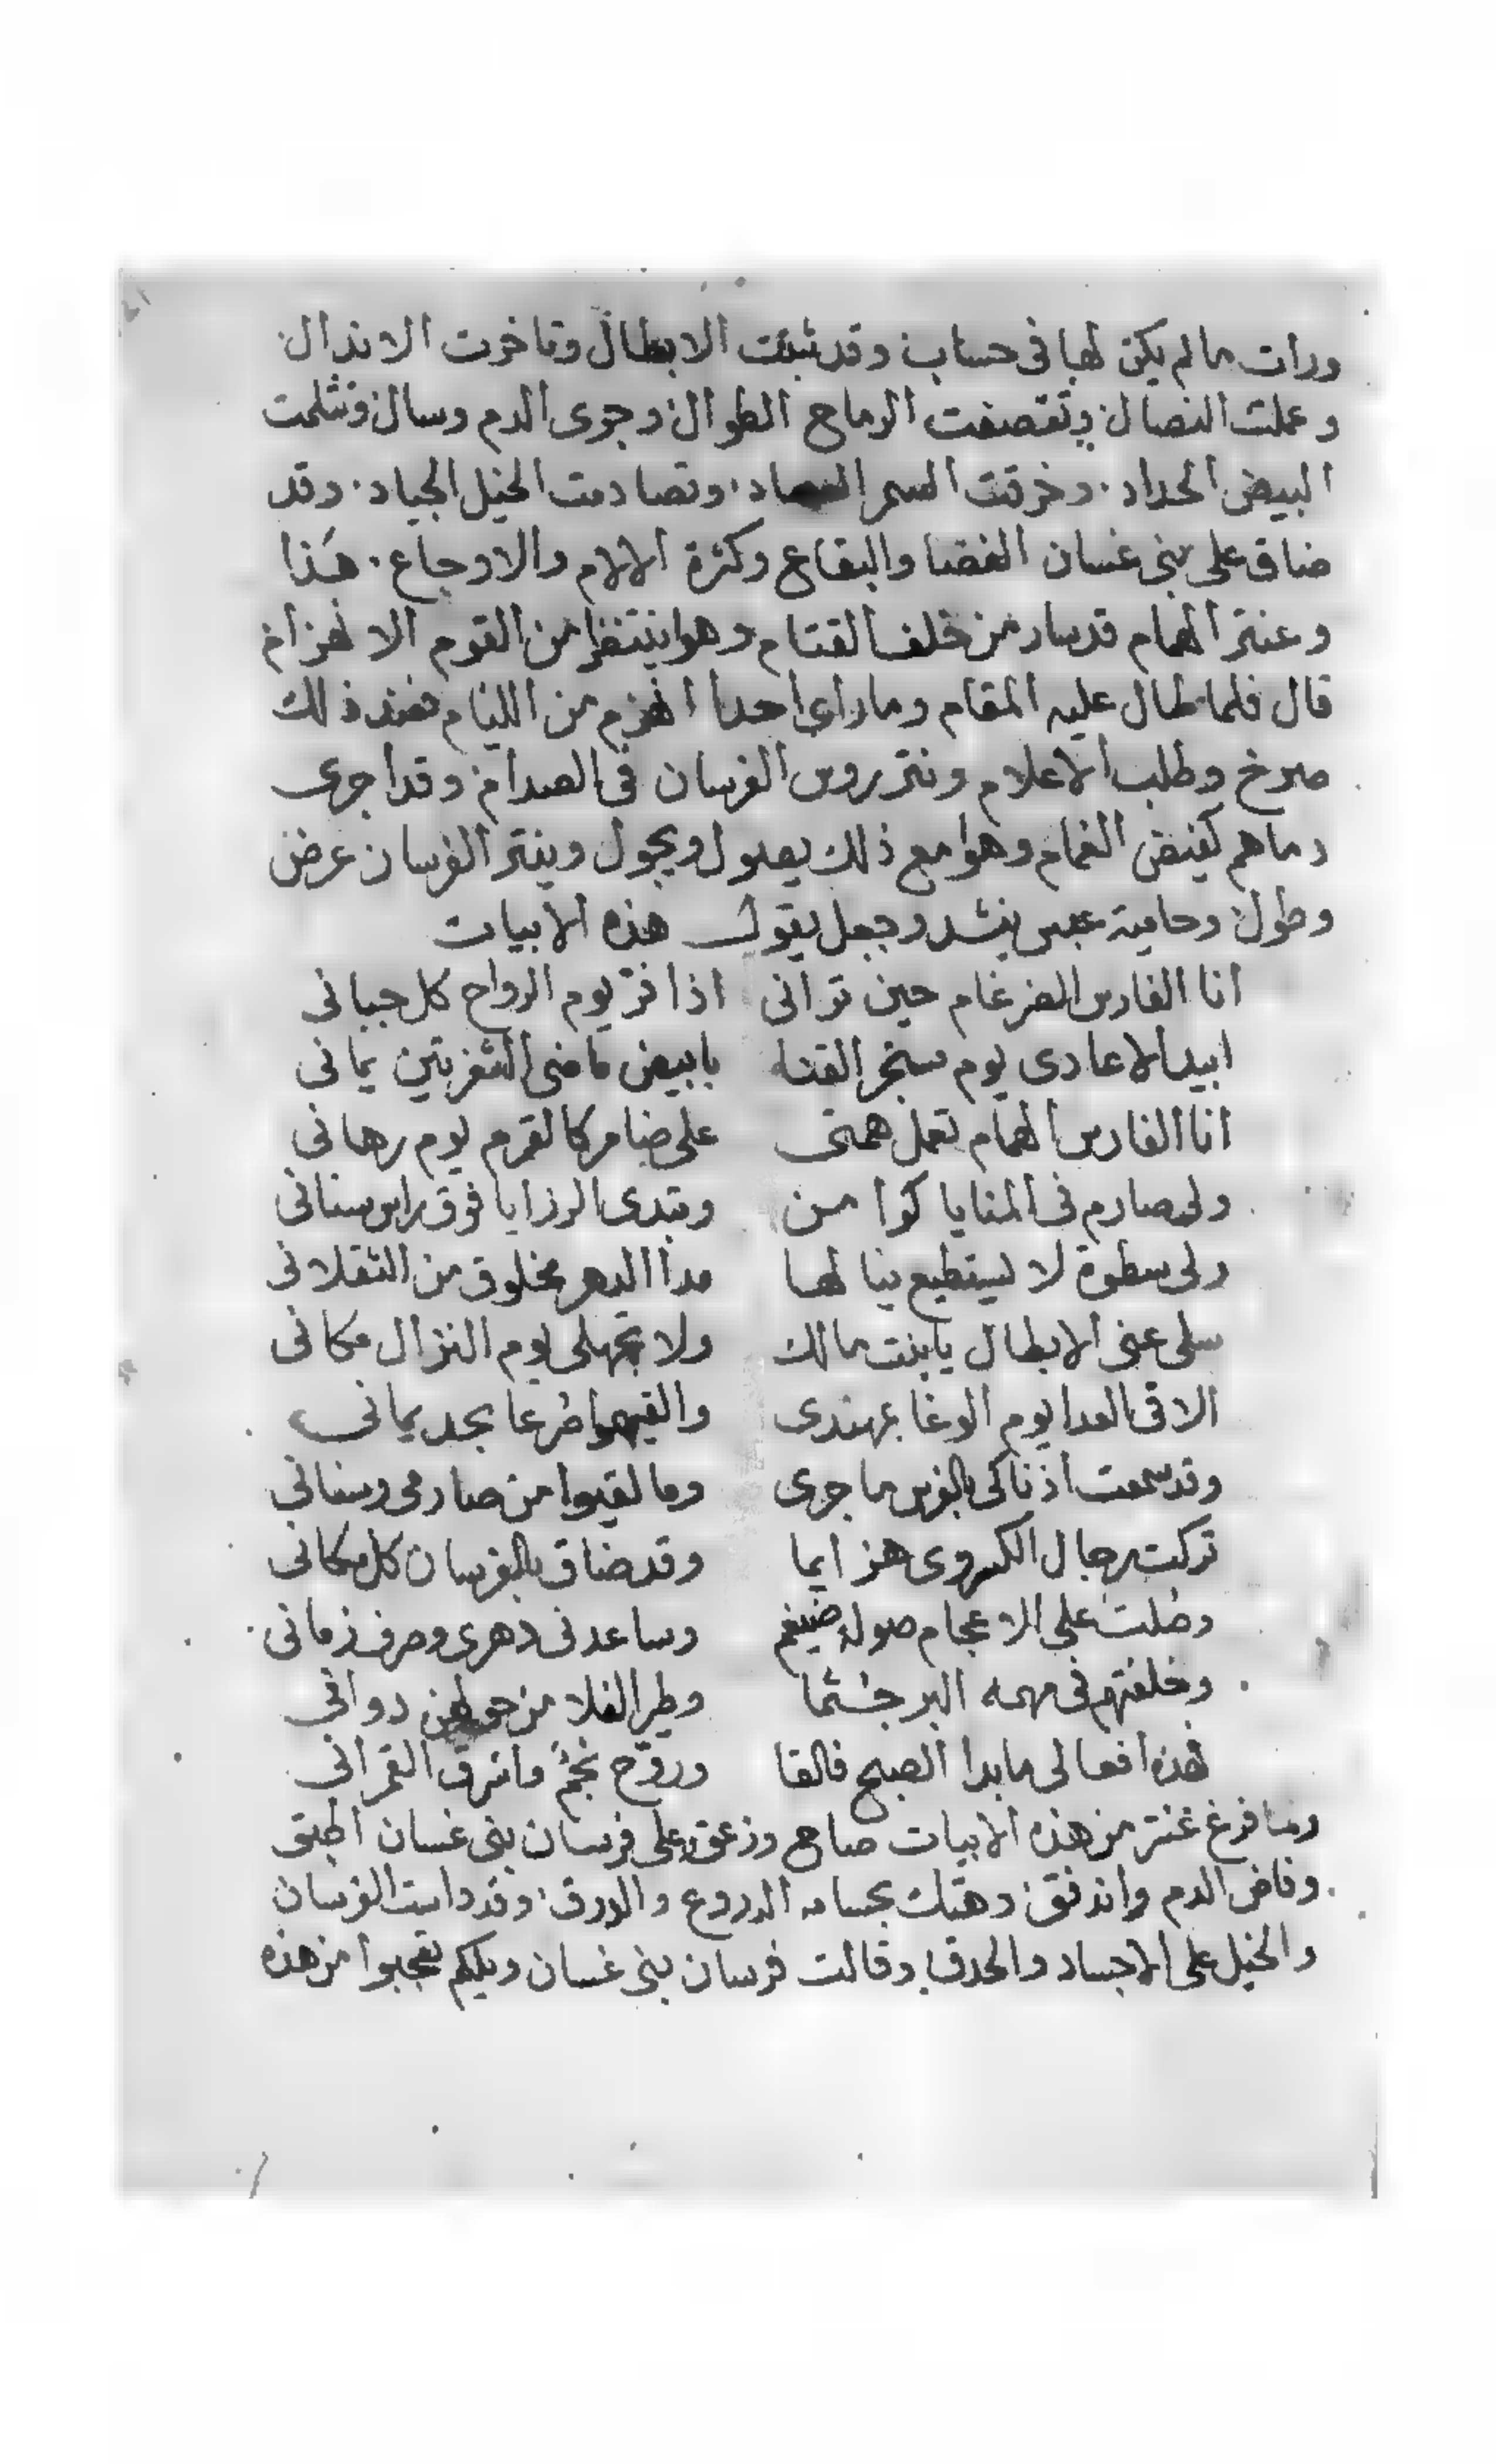 ورات ما لم يكن لها في حساب وقد ثبتت الابطال وتاخرت الاندال
وعملت النصال وتقصفت الرماح الطوال وجرى الدم وسال وتثلمت
البيض الحداد وخرقت السمر وتصادمت الخيل الجياد وقد
ضاق على بني غسان الفضا والبقاع وكثرة الالام والاوجاع هذا
وعنتر الهمام قد سار من خلف القتام وهوا ينتظر من القوم الانهزام
قال فلما طال عليه المقام وما راى احدا انهزم من الليام فعند ذلك
صرخ وطلب الاعلام ونتر روس الفرسان في الصدام وقد اجرى
دماهم كفيض الغمام وهوا مع ذلك يصول ويجول وينتر الفرسان عرض
وطول وحامية عبس ينشد وجعل يقول هذه الابيات
انا الفارس الضرغام حين تراني اذا فرّ يوم الرواح كل جباني
ابيد الاعادى يوم القنا بابيض ماضى الشفرتين يماني
انا الفارس الهمام تعمل همتى على ضامر كالقرم يوم رهاني
ولي صارم في المنايا كوامن وتبدى الرزايا فوق راس سناني
ولي سطوة لا يستطيع ينالها مدا الدهر مخلوق من الثقلاني
سلي عني الابطال يا بنت مالك ولا تجهلي يوم النزال مكاني
الاقي العدا يوم الوغا بمهندى والقيهموا ضرعا بحد يماني
وقد سمعت اذناكي بالفرس ما جرى وما لقيوا من صارمي وسناني
تركت رجال الكسروى هزايما وقد ضاق بالفرسان كل مكاني
وصلت على الاعجام صولة ضيغم وساعدني دهرى وصرف زماني
وخلفتهم في مهمه البر جثما وطير الفلا من حولهن دواني
فهذه افعالي ما بدا الصبح فالقا وروّح نجم واشرق القمراني
وما فرغ عنتر من هذه الابيات صاح وزعق على فرسان بني غسان انطبق
وفاض الدم واندفق وهتك بحسامه الدروع والدرق وقد داست الفرسان
والخيل على الاجساد والحدق وقالت فرسان بني غسان ويلكم تعجبوا من هذه